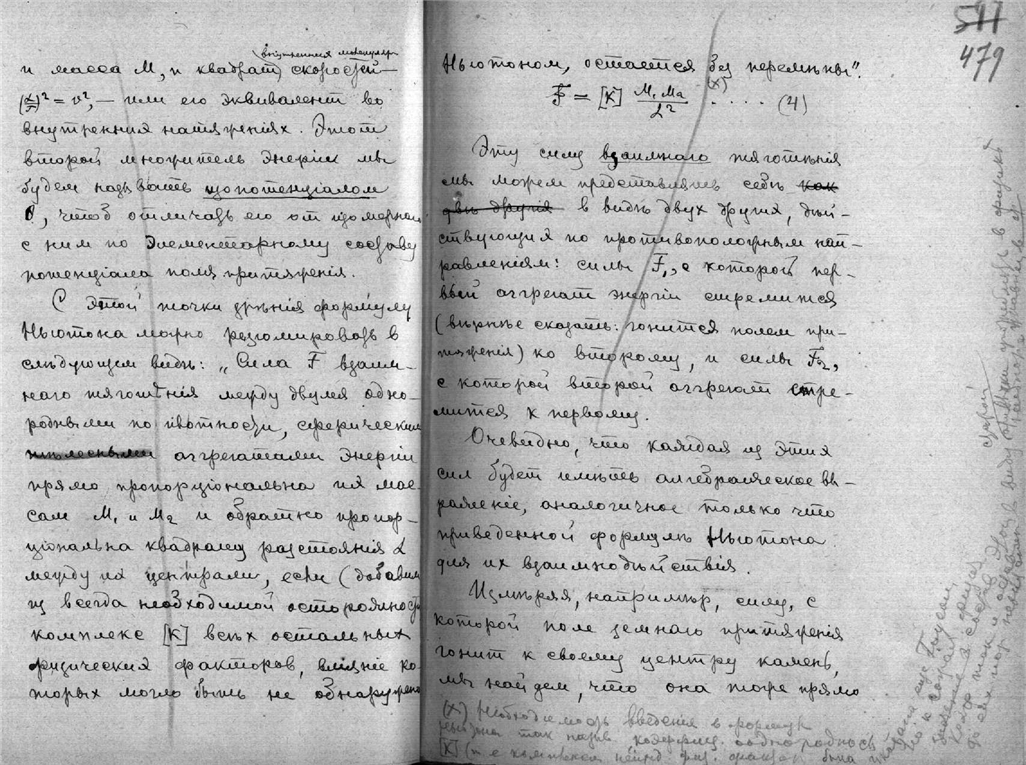 внутренния молекуляр
и масса М, и квадрат скоростей —
(α/T)² = v², — или его эквивалент во
внутренних натяженіях. Этот
второй множитель Энергіи мы
будем называть изопотенціалом
с ним по элементарному составу
потенціала поля притяженія.
С этой точки зрѣнія формулу
Ньютона можно резюмировать в
слѣдующем видѣ: „Сила F взаим-
наго тяготѣнія между двумя одно-
родными по плотности, сферическими
аггрегатами Энергіи
прямо пропорціональна их мас-
сам М₁ и М₂ и обратно пропор-
ціональна квадрату разстоянія L
между их центрами, если (добавим
из всегда необходимой осторожност
комплекс [К] всѣх остальных
физических факторов, вліяніе ко-
торых могло быть не обнаружено
511
479
Ньютоном, остается без перемѣны".
(x)
F = [К] М₁ М₂ / L² . . . . . (4)
Эту силу взаимнаго тяготѣнія
мы можем представлять себѣ как
двѣ другія в видѣ двух других, дѣй-
ствующих по противоположным нап-
равленіям: силы F₁, с которой пер-
вый аггрегат энергіи стремится
(вѣрнѣе сказать: гонится полем при-
тяженія) ко второму, и силы F₂,
с которой второй аггрегат стре-
мится к первому.
Очевидно, что каждая из этих
сил будет имѣть алгебраическое вы-
раженіе, аналогичное только что
приведенной формулѣ Ньютона
для их взаимнодѣйствія.
Измѣряя, напримѣр, силу, с
которой поле земнаго притяженія
гонит к своему центру камень,
мы найдем, что она тоже прямо
(x) Необходимость введенія в формулу
так назыв. коэффиц.
[К] (т е комплекса физ. была